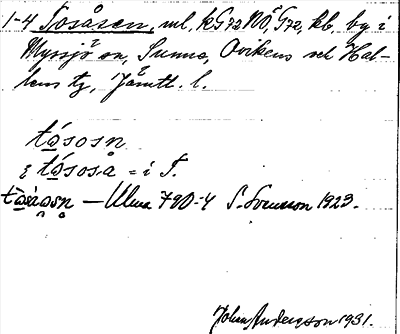 1-4 Tosåsen, ml. kG72NÖ, G72, kb. by i
Myssjö sn, Sunne, Ovikens och Hal-
lens tg, Jämtl. l.
tósosn
ę tósoså = i T.
tòsåsn — Ulma 790-4 S. Svensson 1923.
John Andersson 1931.